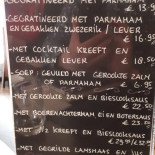 GEGRATINEERD MET PARMAHAM
€ 13.
- GEGRATINEERD MET PARMAHAM
EN GEBAKKEN ZWEZERIK / LEVER
€ 16.95
- MET COCKTAIL KREEFT EN
GEBAKKEN LEVER € 18.50
- SOEP: GEVULD MET GEROOKTE ZALM
OF PARMAHAM. € 6.95
- MET GEROOKTE ZALM EN BIESLOOKSAUS
€ 22.50
- MET BOERENACHTERHAM EI EN BOTERSAUS
€ 23.50
- MET 1/2 KREEFT EN BIESLOOKSAUS
€ 29.50
- MET GEGRILDE LAMSHAAS EN